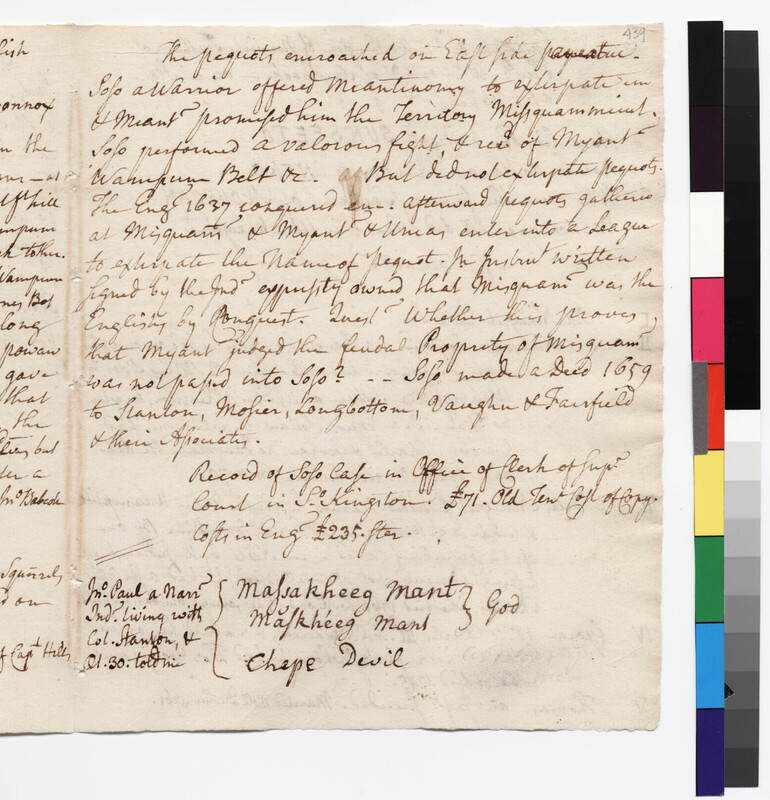 439
The pequots encroached on East side pawcatuc.
Soso a Warrior offered Meantinomy to extirpate em
& Meant.ͫ promised him the Territory Misquammicut.
Soso performed a valorous fight, & recᵈ of Myantᵐ
Wampum Belt &c. But did not extirpate pequots.
The Engˢ 1637 conquered em: afterward pequots gathered
at Misquamᵗ & Myantᵐ & Uncas enter into a League
to extirpate the Name of Pequot. In Instruᵗ written
signed by the Indˢ expressly owned that Misquamᵗ was the
Englishs by Conquest. Questⁿ Whether this proves,
that Myantᵐ judged the feudal Property of Misquamᵗ
was not passed into Soso? -- Soso made a Deed 1659
to Stanton, Mosier, Longbottom, Vaughn & Fairfield
& their Associates.
Record of Soso Case in Office of Clerk of Supʳ
Court in Sº Kingston. £71. Old Tenʳ Cost of Copy.
Costs in Engᵈ £235. ster.
Jnº Paul a Narrᵗ
Indⁿ living with
Col. Stanton, &
Æt. 30. told me
Massakheeg Mant
Maskhéeg Mant
God
Chepe Devil
lish
onnox
n the
hill
ampum
Wampum
long
powaw
gave
that
the
but
a
Jnº Babcock
Squirrels
on
of Capᵗ Hills